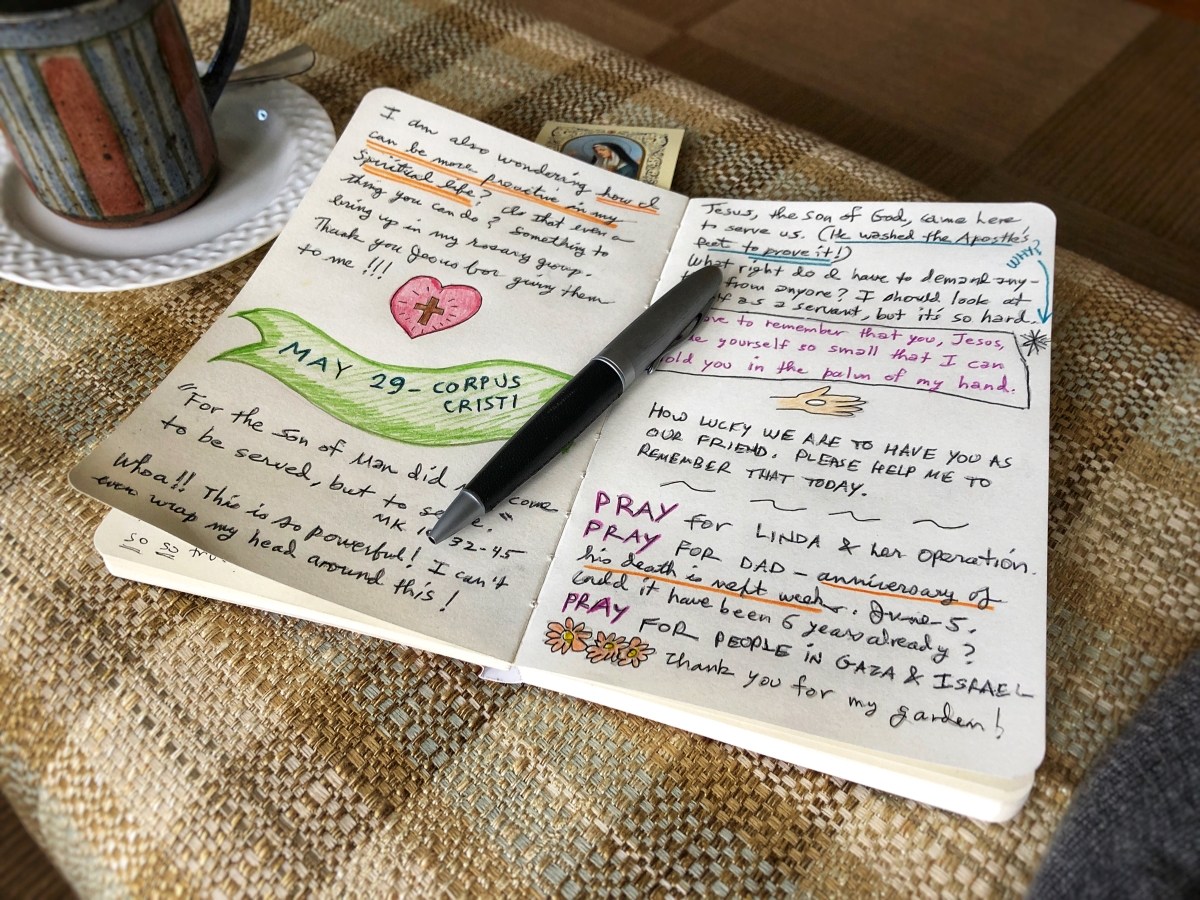 I am also wondering how I
can be more proactive in my
spiritual life? Is that even a
thing you can do? Something to
bring up in my rosary group.
Thank you Jesus for giving them
to me!!!
MAY 29 - CORPUS
CRISTI
"For the son of Man did come
to be served, but to serve."
MK 32-45
Whoa!! This is so powerful! I can't
even wrap my head around this!
so so
Jesus, the son of God, came here
to serve us. (He washed the Apostle's
feet to prove it!)
WHY?
What right do I have to demand any-
from anyone? I should look at
as a servant, but it's so hard.
to remember that you, Jesus,
yourself so small that I can
you in the palm of my hand.
HOW LUCKY WE ARE TO HAVE YOU AS
OUR FRIEND. PLEASE HELP ME TO
REMEMBER THAT TODAY.
PRAY for LINDA & her operation.
PRAY FOR DAD - anniversary of
his death is next week. June 5.
Could it have been 6 years already?
PRAY FOR PEOPLE IN GAZA & ISRAEL
Thank you for my garden!